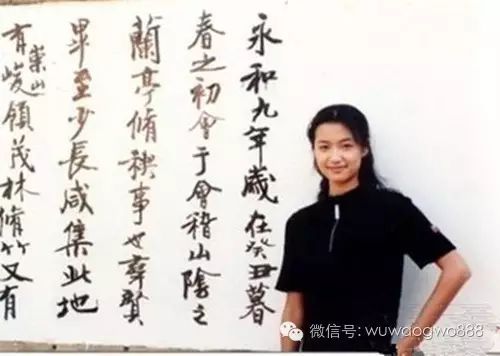 永和九年歲在癸丑暮
春之初會于會稽山陰之
蘭亭脩稧事也羣賢
畢至少長咸集此地
有崇山峻領茂林脩竹又有
微信号: wuwaogwo888